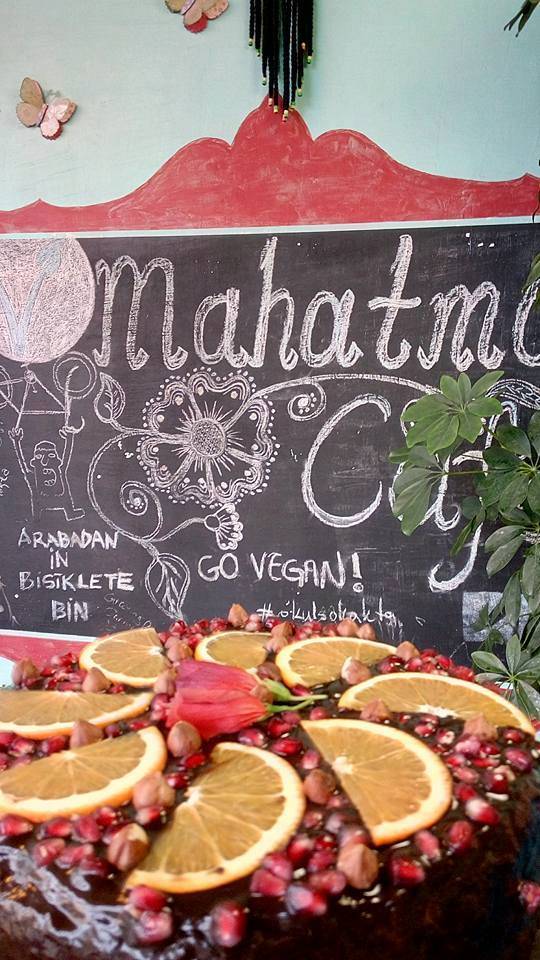 Mahatma
Caf
GO VEGAN!
ARABADAN
İN
BİSİKLETE
BİN
#okulsokakta